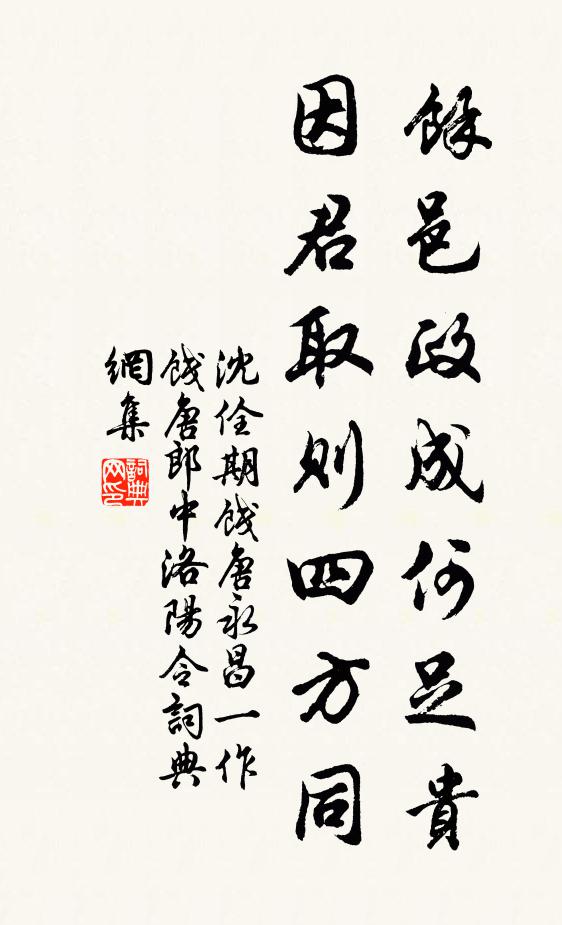 餘邑政成何足貴
因君取則四方同
沈佺期餞唐永昌一作
餞唐郎中洛陽令詞典
網集
詞典网印